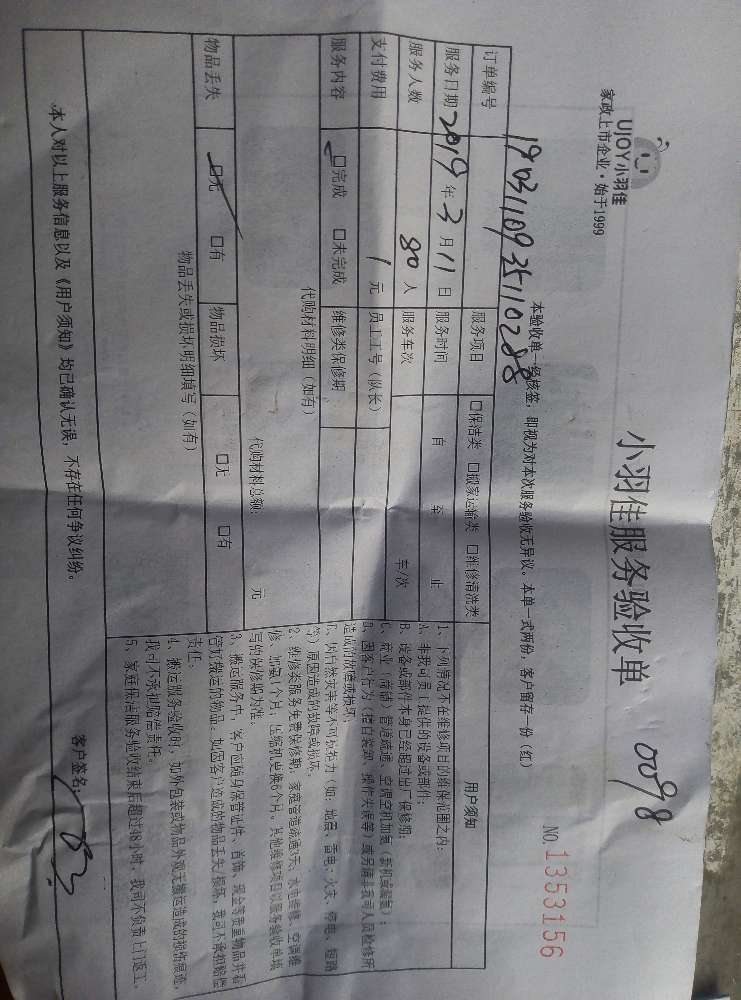 UJOY小羽佳
家政上市企业·始于1999
小羽佳服务验收单
0098
NO.1353156
本验收单一经核签,即视为对本次服务验收无异议。本单一式两份,客户留存一份(红)
订单编号 190311093511028 服务项目 □保洁类 □搬家运输类 □维修清洗类
服务日期 2019年3月11日 服务时间 自 至 止
服务人数 80人 服务车次 车/次
支付费用 1元 员工工号(队长)
服务内容 □完成 □未完成 维修类保修期
代购材料明细(如有)
代购材料总额: 元
物品丢失 □无 □有 物品损坏 □无 □有
物品丢失或损坏明细填写(如有)
用户须知
1、下列情况不在维修项目的维保范围之内:
A、非我司员工提供的设备或部件;
B、设备或部件本身已经超过出厂保修期;
造成的故障或损坏;
等)原因造成的故障或损坏。
写的保修期为准。
3、搬运服务中,客户应随身保管证件、首饰、现金等贵重物品并看
管好搬运的物品。如因客户造成的物品丢失/损坏,我司不承担赔偿
责任;
4、搬运服务验收时,如外包装或物品外观无搬运造成的损伤痕迹,
我司不承担赔偿责任。
5、家庭保洁服务验收结束后超过48小时,我司不负责上门返工。
本人对以上服务信息以及《用户须知》均已确认无误,不存在任何争议纠纷。
客户签名: